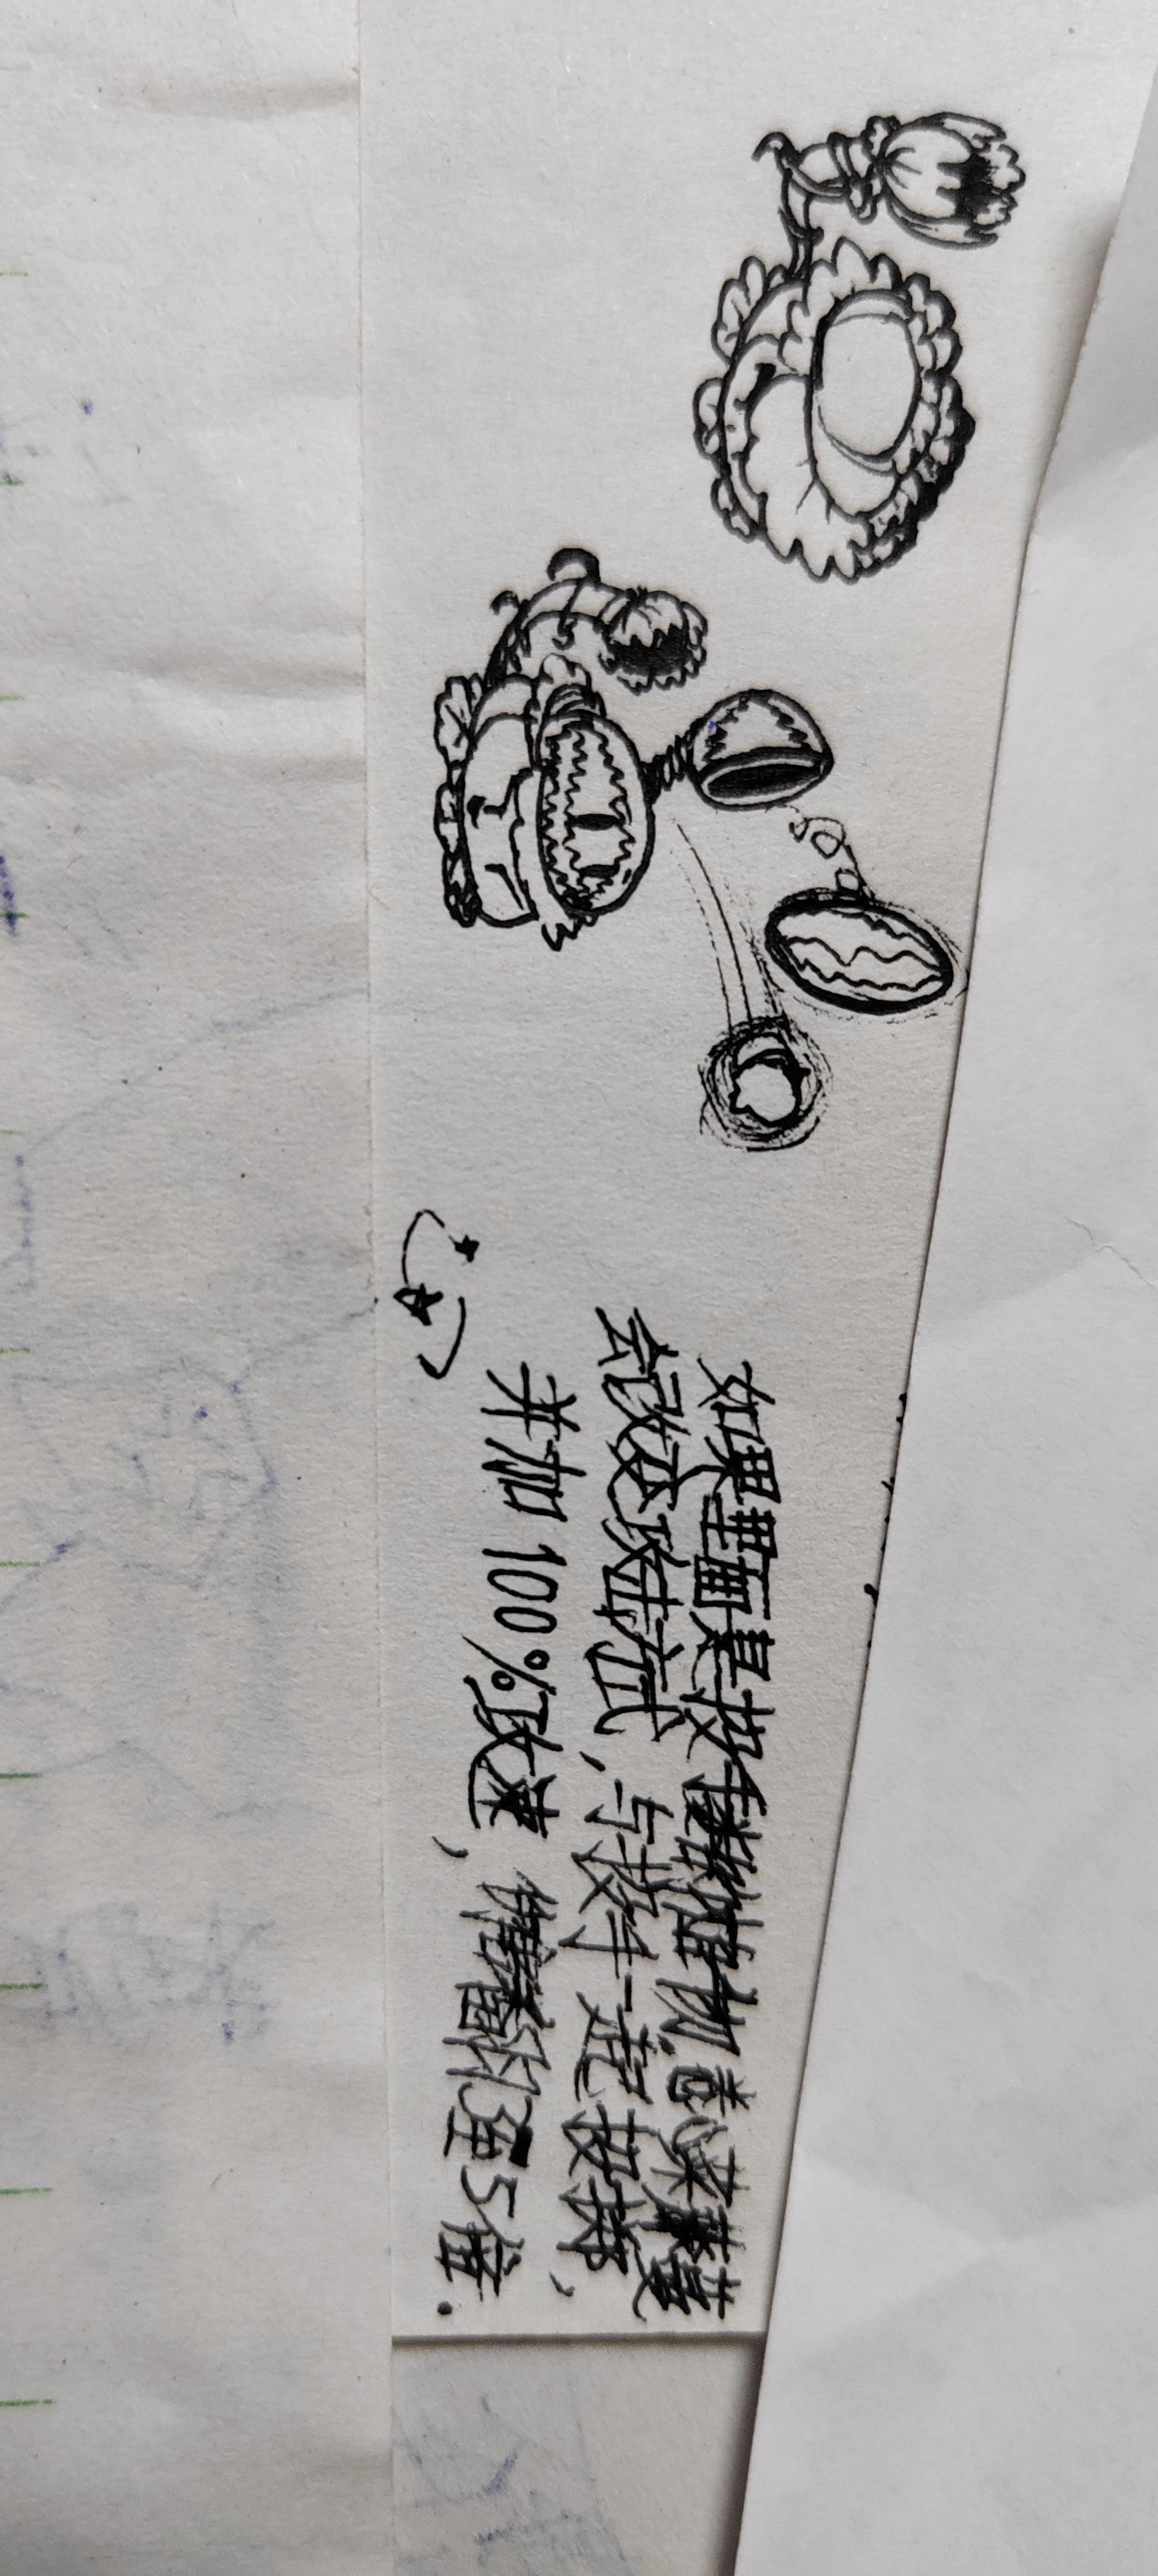 如果里面是投手类植物.卷心菜薹
会改变攻击方式,与投手一起投掷,
并加100%攻速,伤害翻至5倍.